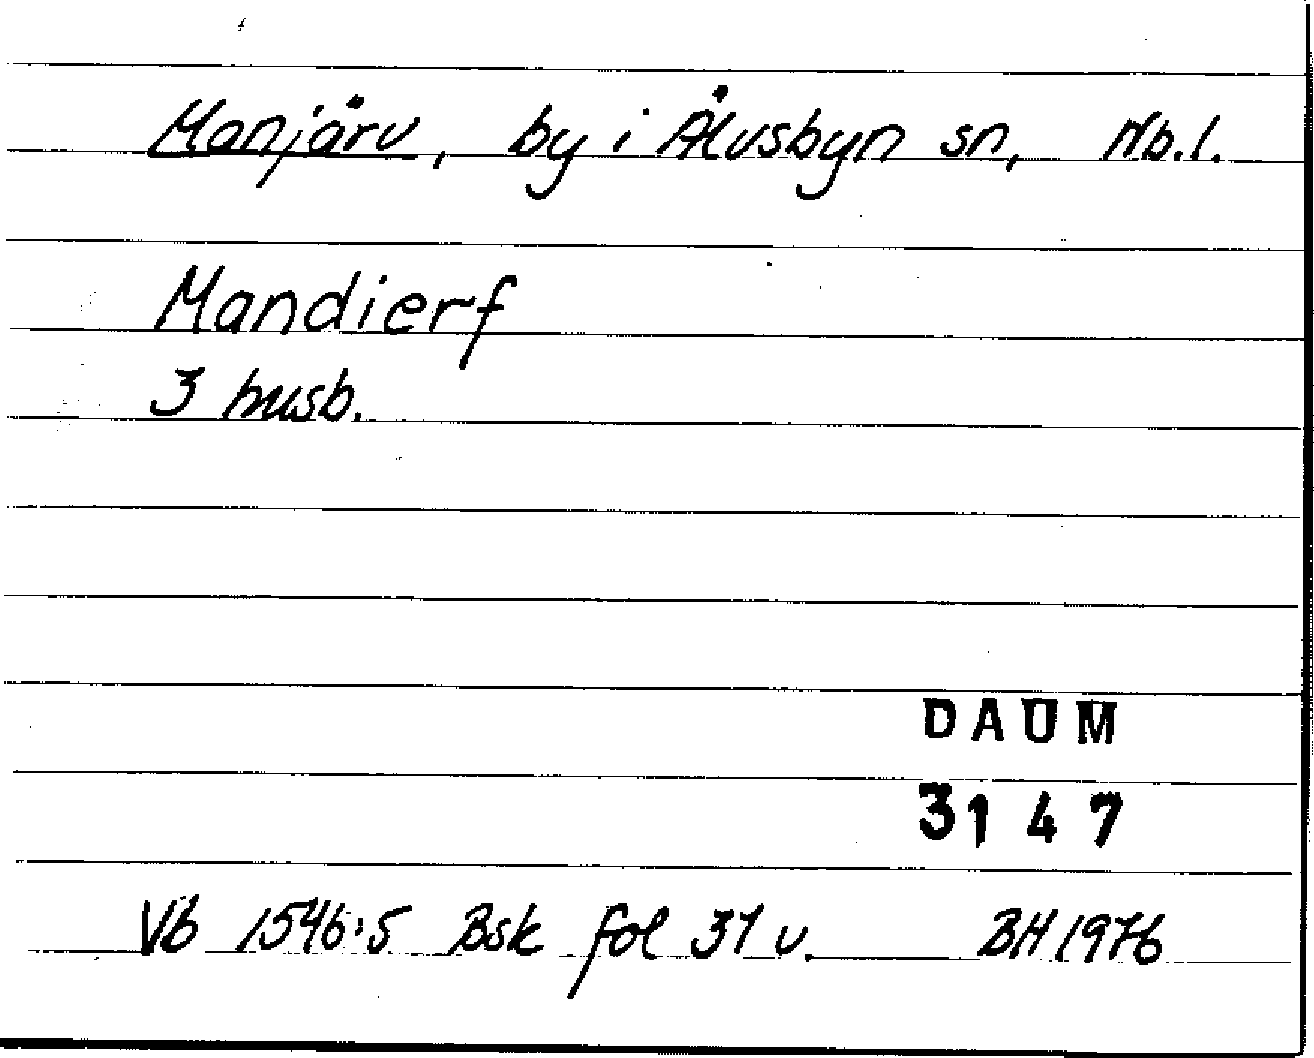 Manjärv, by i Älvsbyn sn, Nb.l.
Mandierf
3 husb.
DAUM
3147
Vb 1546:5 Bsk fol 31 v. BH 1976